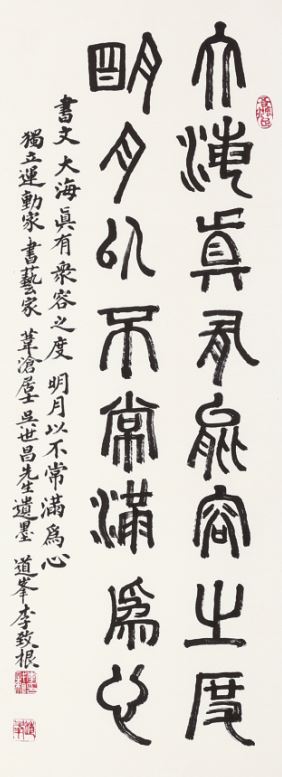 大海眞有眾容之度
明月以不常滿爲心
書文 大海眞有衆容之度 明月以不常滿爲心
獨立運動家 書藝家 葦滄居士 吳世昌先生遺墨 道峯 李致根